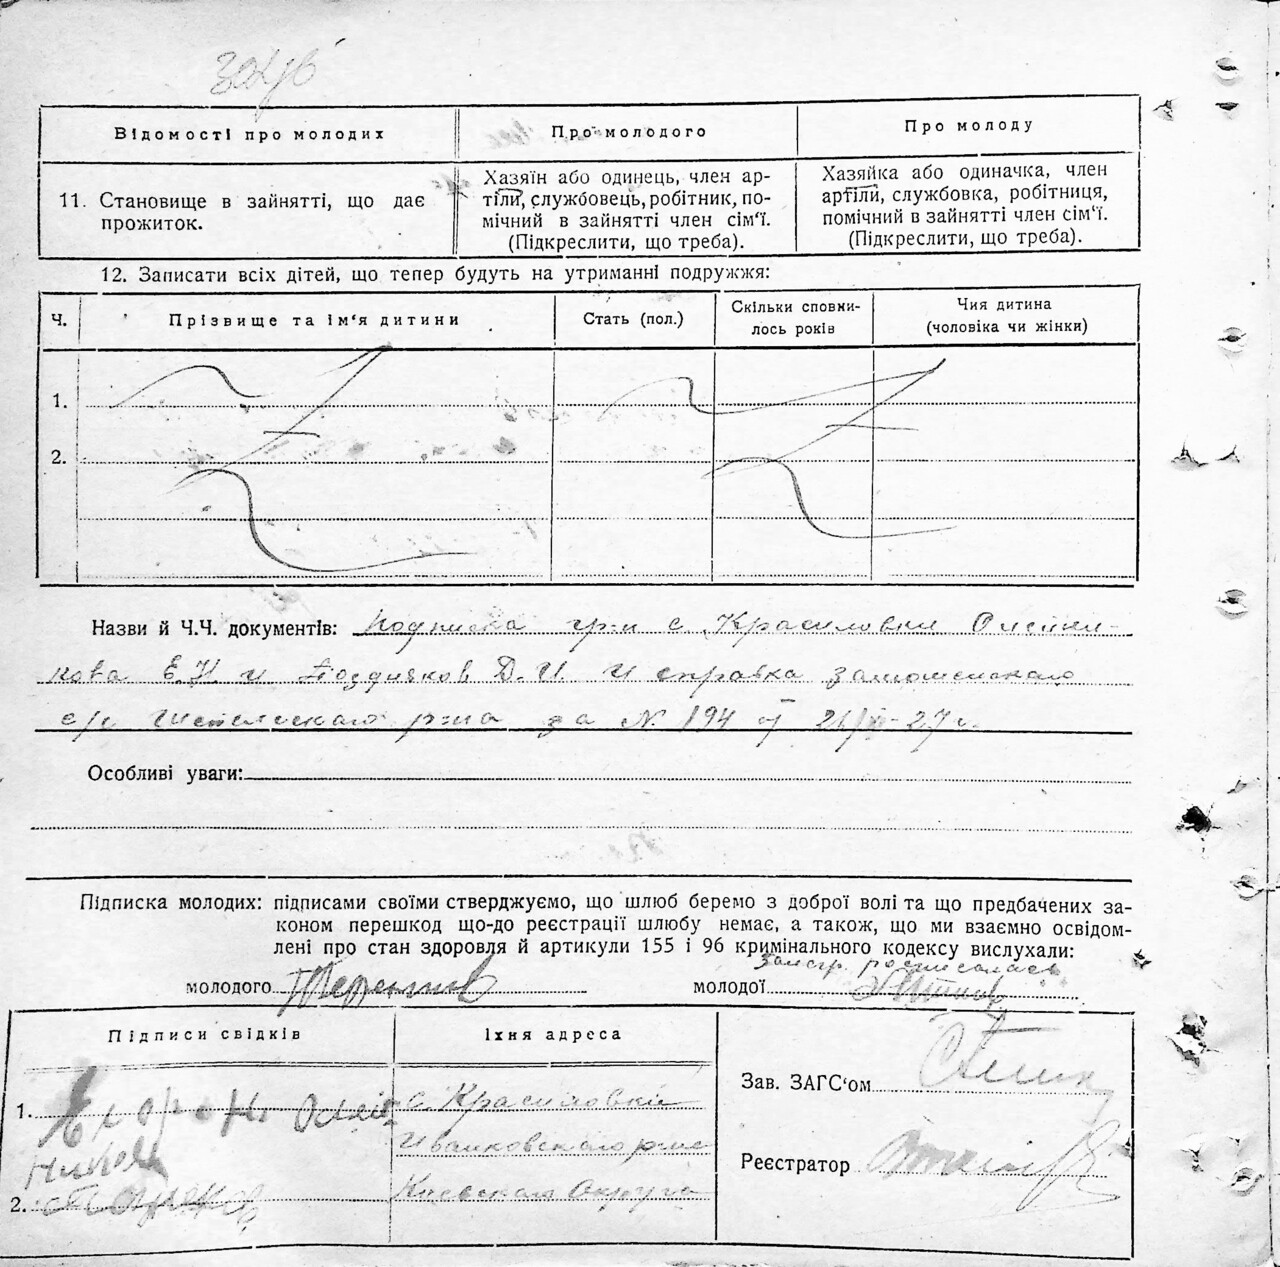 Відомості про молодих
Про молодого
Про молоду
11. Становище в зайнятті, що дає
прожиток.
Хазяїн або одинець, член ар-
тіли, службовець, робітник, по-
мічний в зайнятті член сім'ї.
(Підкреслити, що треба).
Хазяйка або одиначка, член
артіли, службовка, робітниця,
помічний в зайнятті член сім'ї.
(Підкреслити, що треба).
12. Записати всіх дітей, що тепер будуть на утриманні подружжя:
Ч.
Прізвище та ім'я дитини
Стать (пол.)
Скільки сповни-
лось років
Чия дитина
(чоловіка чи жінки)
1.
2.
Назви й Ч.Ч. документів: Подписка гр-н с. Красиловки Олейни-
кова Е.Н. и Поздняков Д.И. и справка
с/с р-на за № 194 от
Особливі уваги:
Підписка молодих: підписами своїми стверджуємо, що шлюб беремо з доброї волі та що предбачених за-
коном перешкод що-до реєстрації шлюбу немає, а також, що ми взаємно освідом-
лені про стан здоровля й артикули 155 і 96 кримінального кодексу вислухали:
молодого
молодої
Підписи свідків
Їхня адреса
1.
с. Красиловки
Иванковского р-на
Киевского Округа
2.
Зав. ЗАГС'ом
Реєстратор